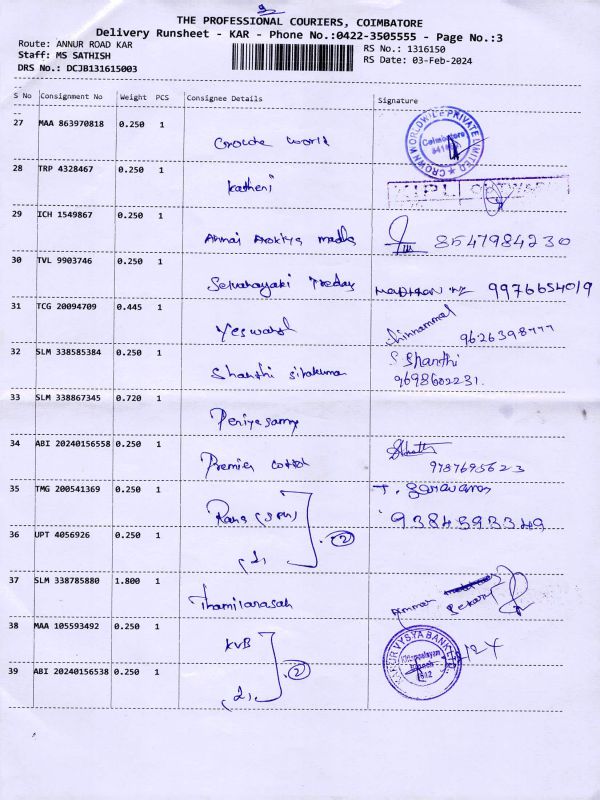 THE PROFESSIONAL COURIERS, COIMBATORE
Delivery Runsheet - KAR - Phone No.:0422-3505555 - Page No.:3
Route: ANNUR ROAD KAR
RS No.: 1316150
Staff: MS SATHISH
RS Date: 03-Feb-2024
DRS No.: DCJB131615003
S No Consignment No Weight PCS Consignee Details Signature
27 MAA 863970818 0.250 1 world
28 TRP 4328467 0.250 1
29 ICH 1549867 0.250 1 Annai Arokiya 8547984230
30 TVL 9903746 0.250 1 9976654019
31 TCG 20094709 0.445 1 Chinnammal
32 SLM 338585384 0.250 1 Shanthi sivakumar S. Shanthi
9698602231.
33 SLM 338867345 0.720 1 Periyasamy
34 ABI 20240156558 0.250 1 Premier 9787695623
35 TMG 200541369 0.250 1 T. Saravanan
9384593349
36 UPT 4056926 0.250 1 2
37 SLM 338785880 1.800 1 Thamilarasah
38 MAA 105593492 0.250 1 KVB KARUR VYSYA BANK LTD.
39 ABI 20240156538 0.250 1 2